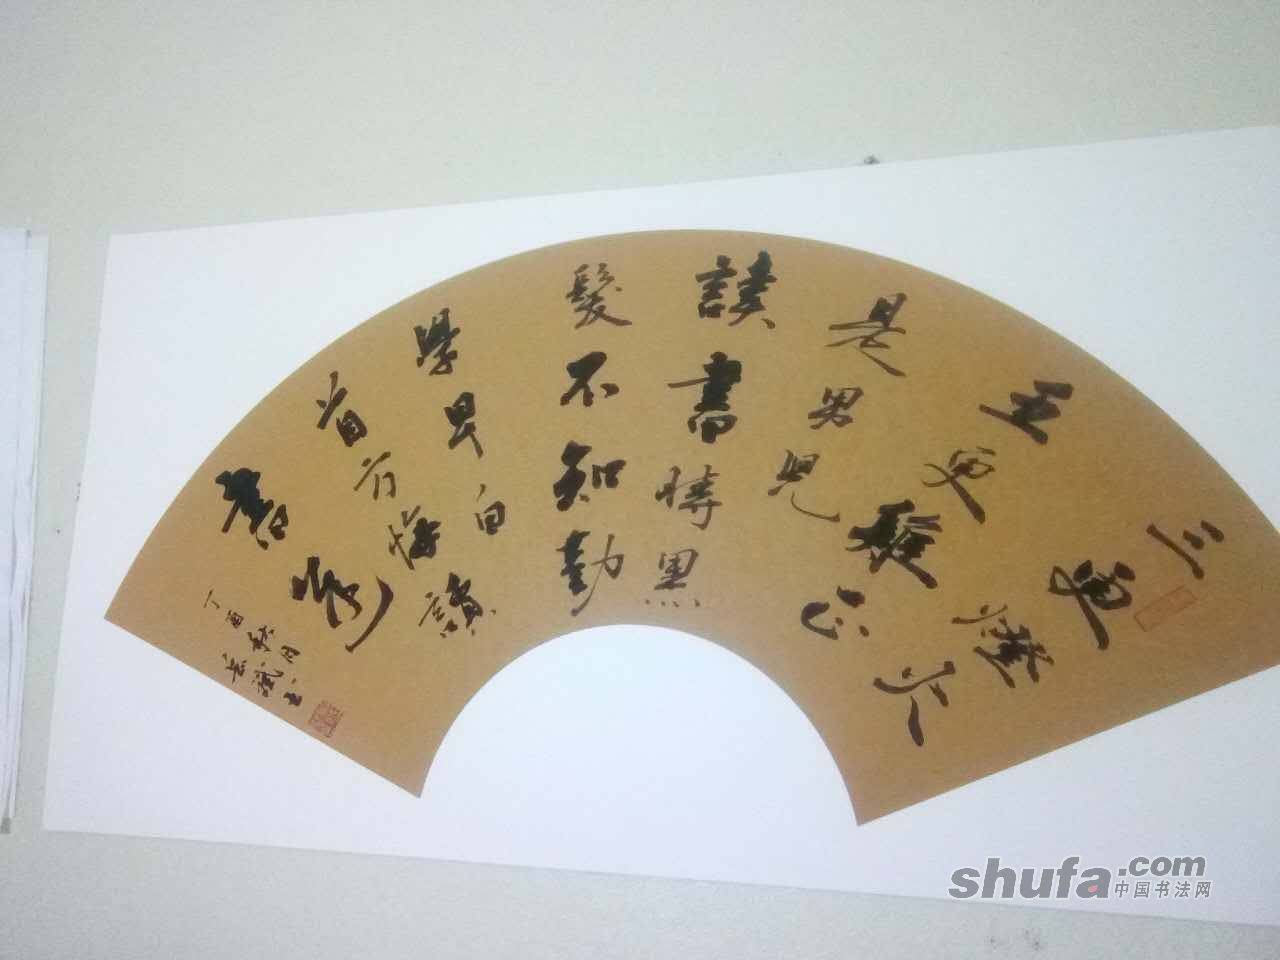 三更
燈火
五更
雞正
是男兒
讀書時黑
髮不知勤
學早白
首方悔讀
書遲
丁酉秋月
shufa.com
中国书法网